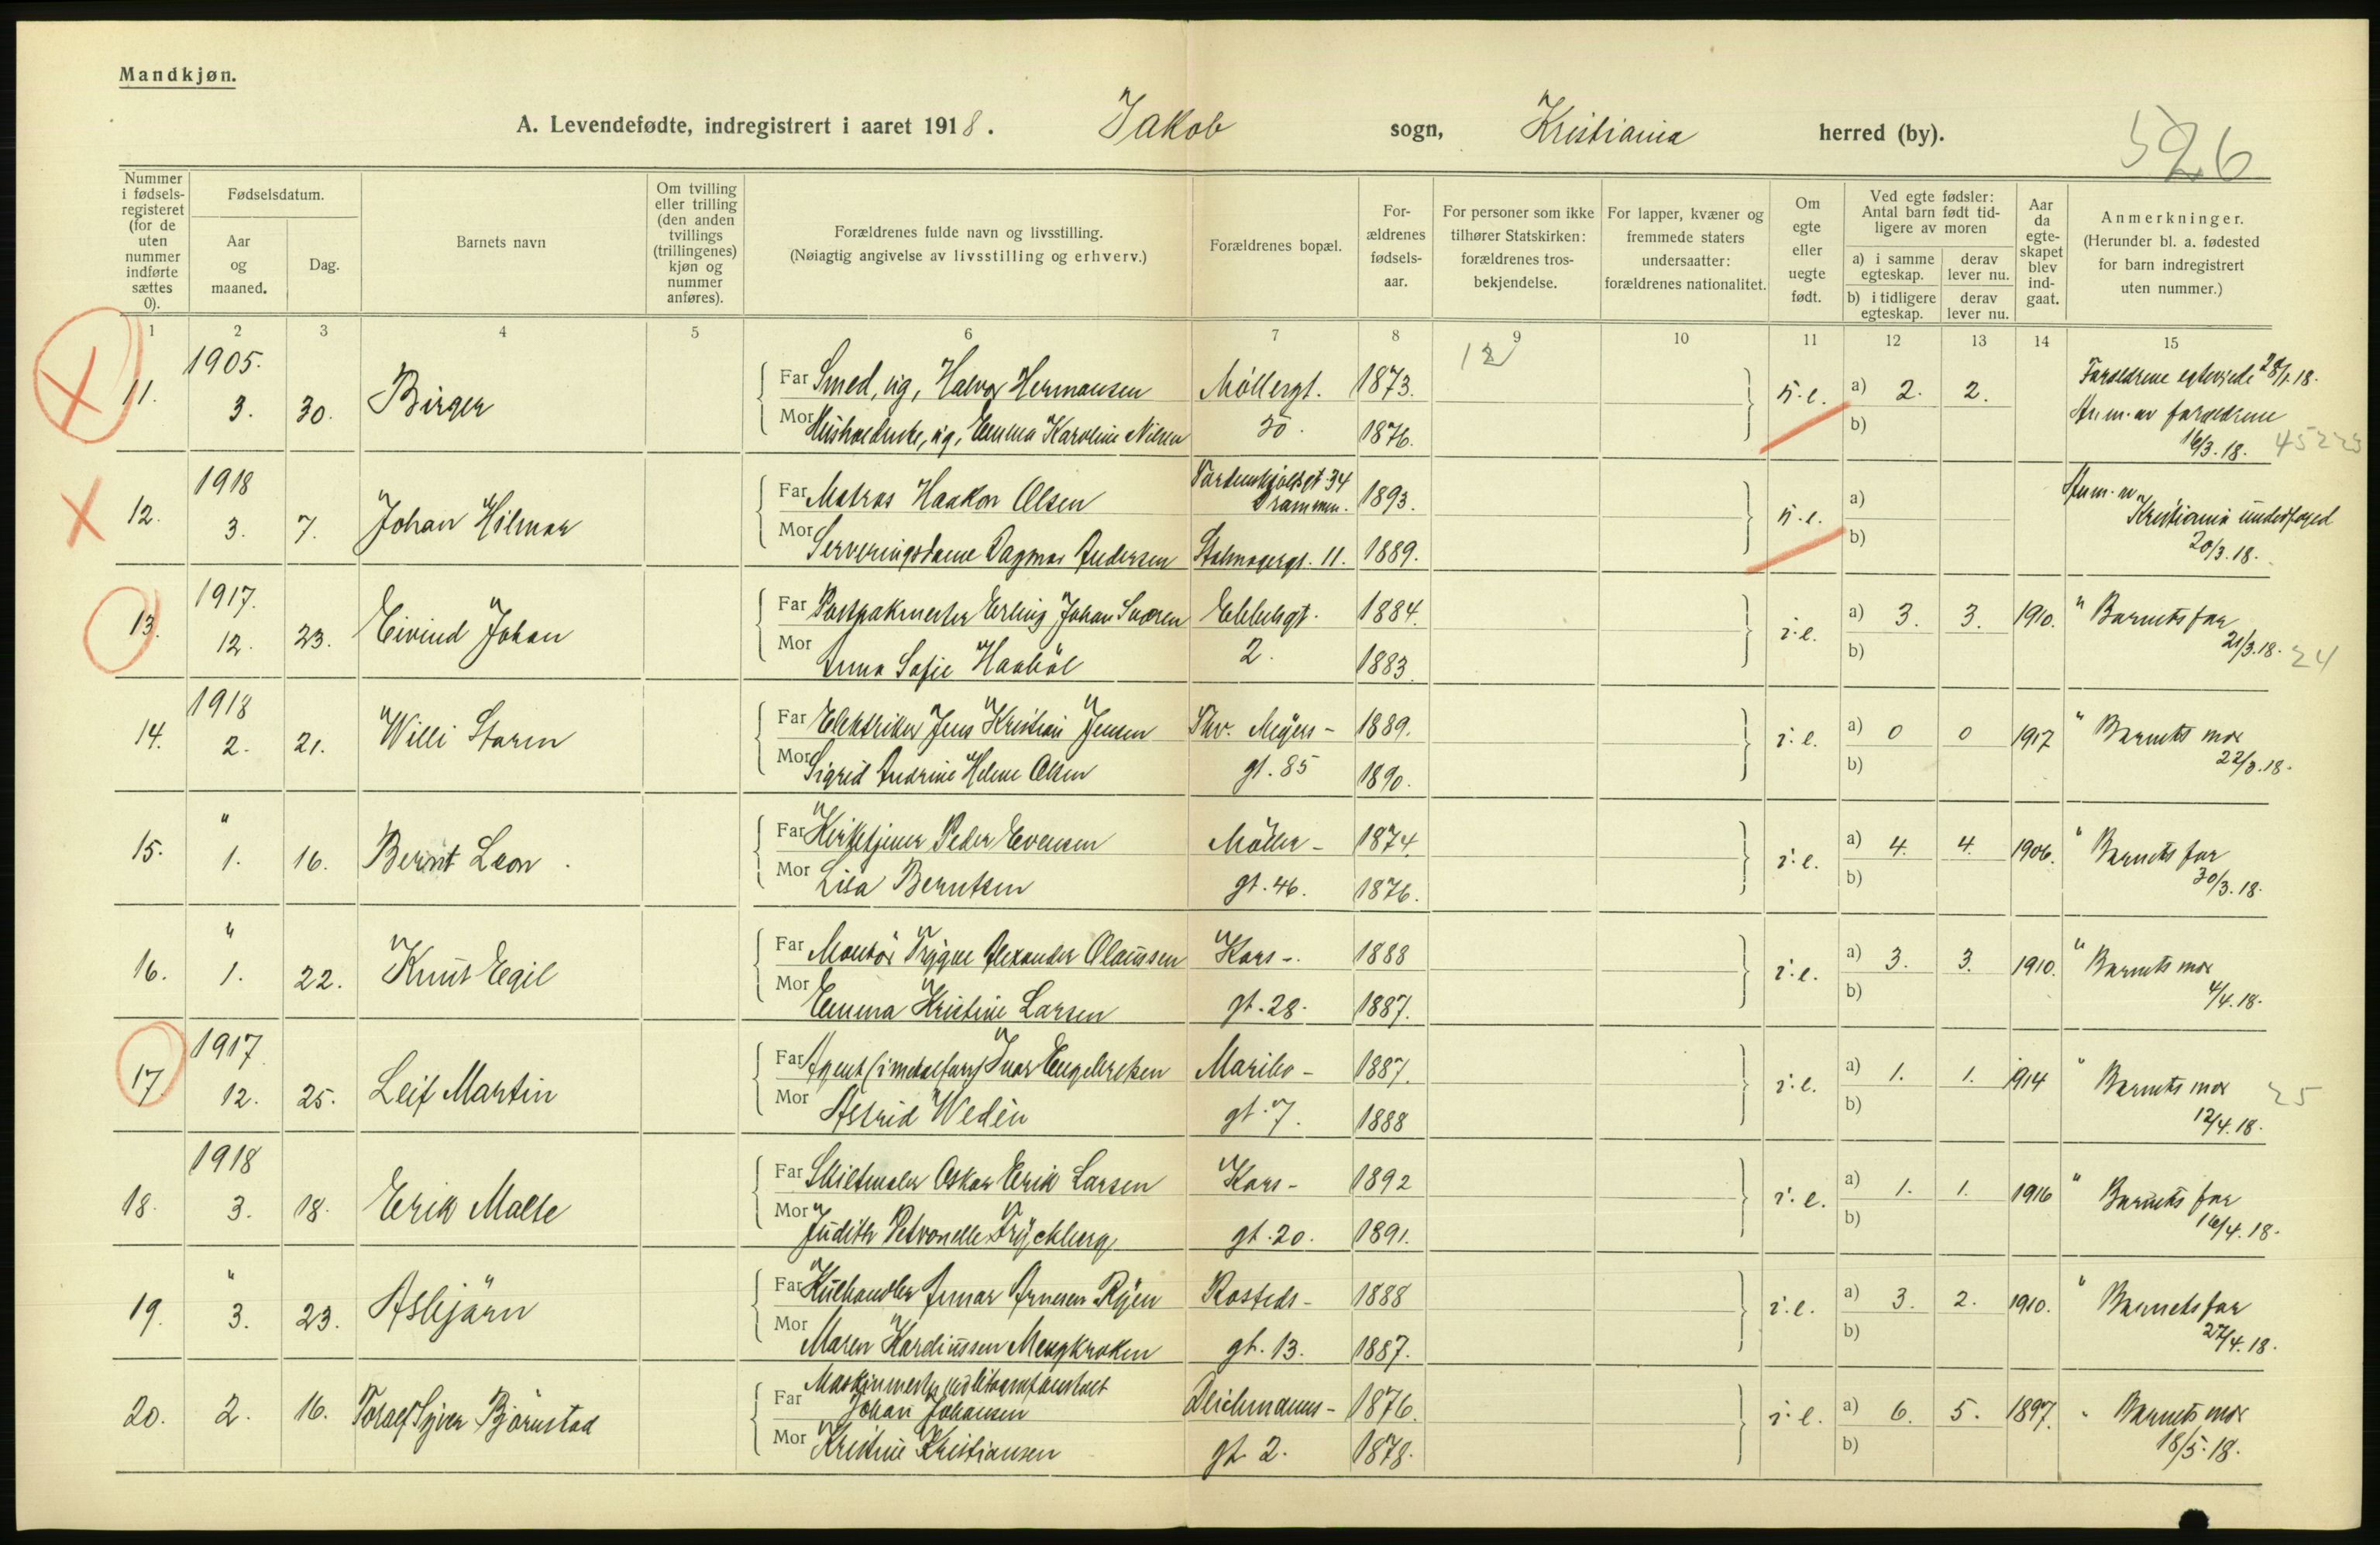 Mandkjøn.
A. Levendefødte, indregistrert i aaret 1918. Jakob sogn, Kristiania herred (by).
526
Nummer i fødsels-registeret (for de uten nummer indførte sættes 0).
Fødselsdatum.
Aar og maaned.
Dag.
Barnets navn
Om tvilling eller trilling (den anden tvillings (trillingenes) kjøn og nummer anføres).
Forældrenes fulde navn og livsstilling.
(Nøiagtig angivelse av livsstilling og erhverv.)
Forældrenes bopæl.
For-ældrenes fødsels-aar.
For personer som ikke tilhører Statskirken: forældrenes tros-bekjendelse.
For lapper, kvæner og fremmede staters undersaatter: forældrenes nationalitet.
Om egte eller uegte født.
Ved egte fødsler: Antal barn født tid-ligere av moren
a) i samme egteskap. derav lever nu.
b) i tidligere egteskap. derav lever nu.
Aar da egte-skapet blev ind-gaat.
Anmerkninger.
(Herunder bl. a. fødested for barn indregistrert uten nummer.)
1 2 3 4 5 6 7 8 9 10 11 12 13 14 15
12
1905.
11. 3. 30. Birger
Far Smed, ug, Halvor Hermansen Møllergt. 1873.
Mor Emma Karoline Nilsen 30. 1876.
u.e. a) 2. 2.
b)
Foreldrene 28/1.18.
Anm. av foreldrene
16/3.18. 45223
1918
12. 3. 7. Johan Hilmar
Far Matros Haakon Olsen 34 Drammen. 1893.
Mor Serveringsdame Dagmar Andersen Stalmagergt. 11. 1889.
u.e. a)
b)
Anm. av
Kristiania underfoged
20/3.18.
1917.
13. 12. 23. Eivind Johan
Far Postpakmester Erling Johan Svoren Ebbelsgt. 1884.
Mor Anna Sofie Haabøl 2. 1883.
i.e. a) 3. 3. 1910.
b)
" Barnets far
21/3.18. 24
1918
14. 2. 21. Willi Storm
Far Elektriker Jens Kristian Jensen Thv. Meyers- 1889.
Mor Sigrid Andrine Helene Olsen gt. 85 1890.
i.e. a) 0 0 1917
b)
" Barnets mor
22/3.18.
"
15. 1. 16. Bernt Leon
Far Kirketjener Peder Evensen Møller- 1874.
Mor Lisa Berntsen gt. 46. 1876.
i.e. a) 4. 4. 1906.
b)
" Barnets far
30/3.18.
"
16. 1. 22. Knut Egil
Far Montør Trygve Alexander Olaussen Kors-. 1888
Mor Emma Kristine Larsen gt. 28. 1887.
i.e. a) 3. 3. 1910.
b)
" Barnets mor
4/4.18.
1917
17. 12. 25. Leif Martin
Far Agent Ivar Engebretsen Maribo- 1887.
Mor Astrid Wedén gt. 7. 1888
i.e. a) 1. 1. 1914
b)
" Barnets mor 25
12/4.18.
1918
18. 3. 18. Erik Malte
Far Skiltmaler Oskar Erik Larsen Kors- 1892
Mor Judith Petronelle Fryckberg gt. 20. 1891.
i.e. a) 1. 1. 1916
b)
" Barnets far
16/4.18.
"
19. 3. 23. Asbjørn
Far Kulhandler Gunnar Arnesen Ryen Rosteds- 1888
Mor Maren Kardiussen Mengkroken gt. 13. 1887.
i.e. a) 3. 2. 1910.
b)
" Barnets far
27/4.18.
20. 2. 16. Toralf Syver Bjørnstad
Maskinmester
Far Johan Johansen Deichmanns- 1876.
Mor Kristine Kristiansen gt. 2. 1878.
i.e. a) 6. 5. 1897.
b)
" Barnets mor
18/5.18.